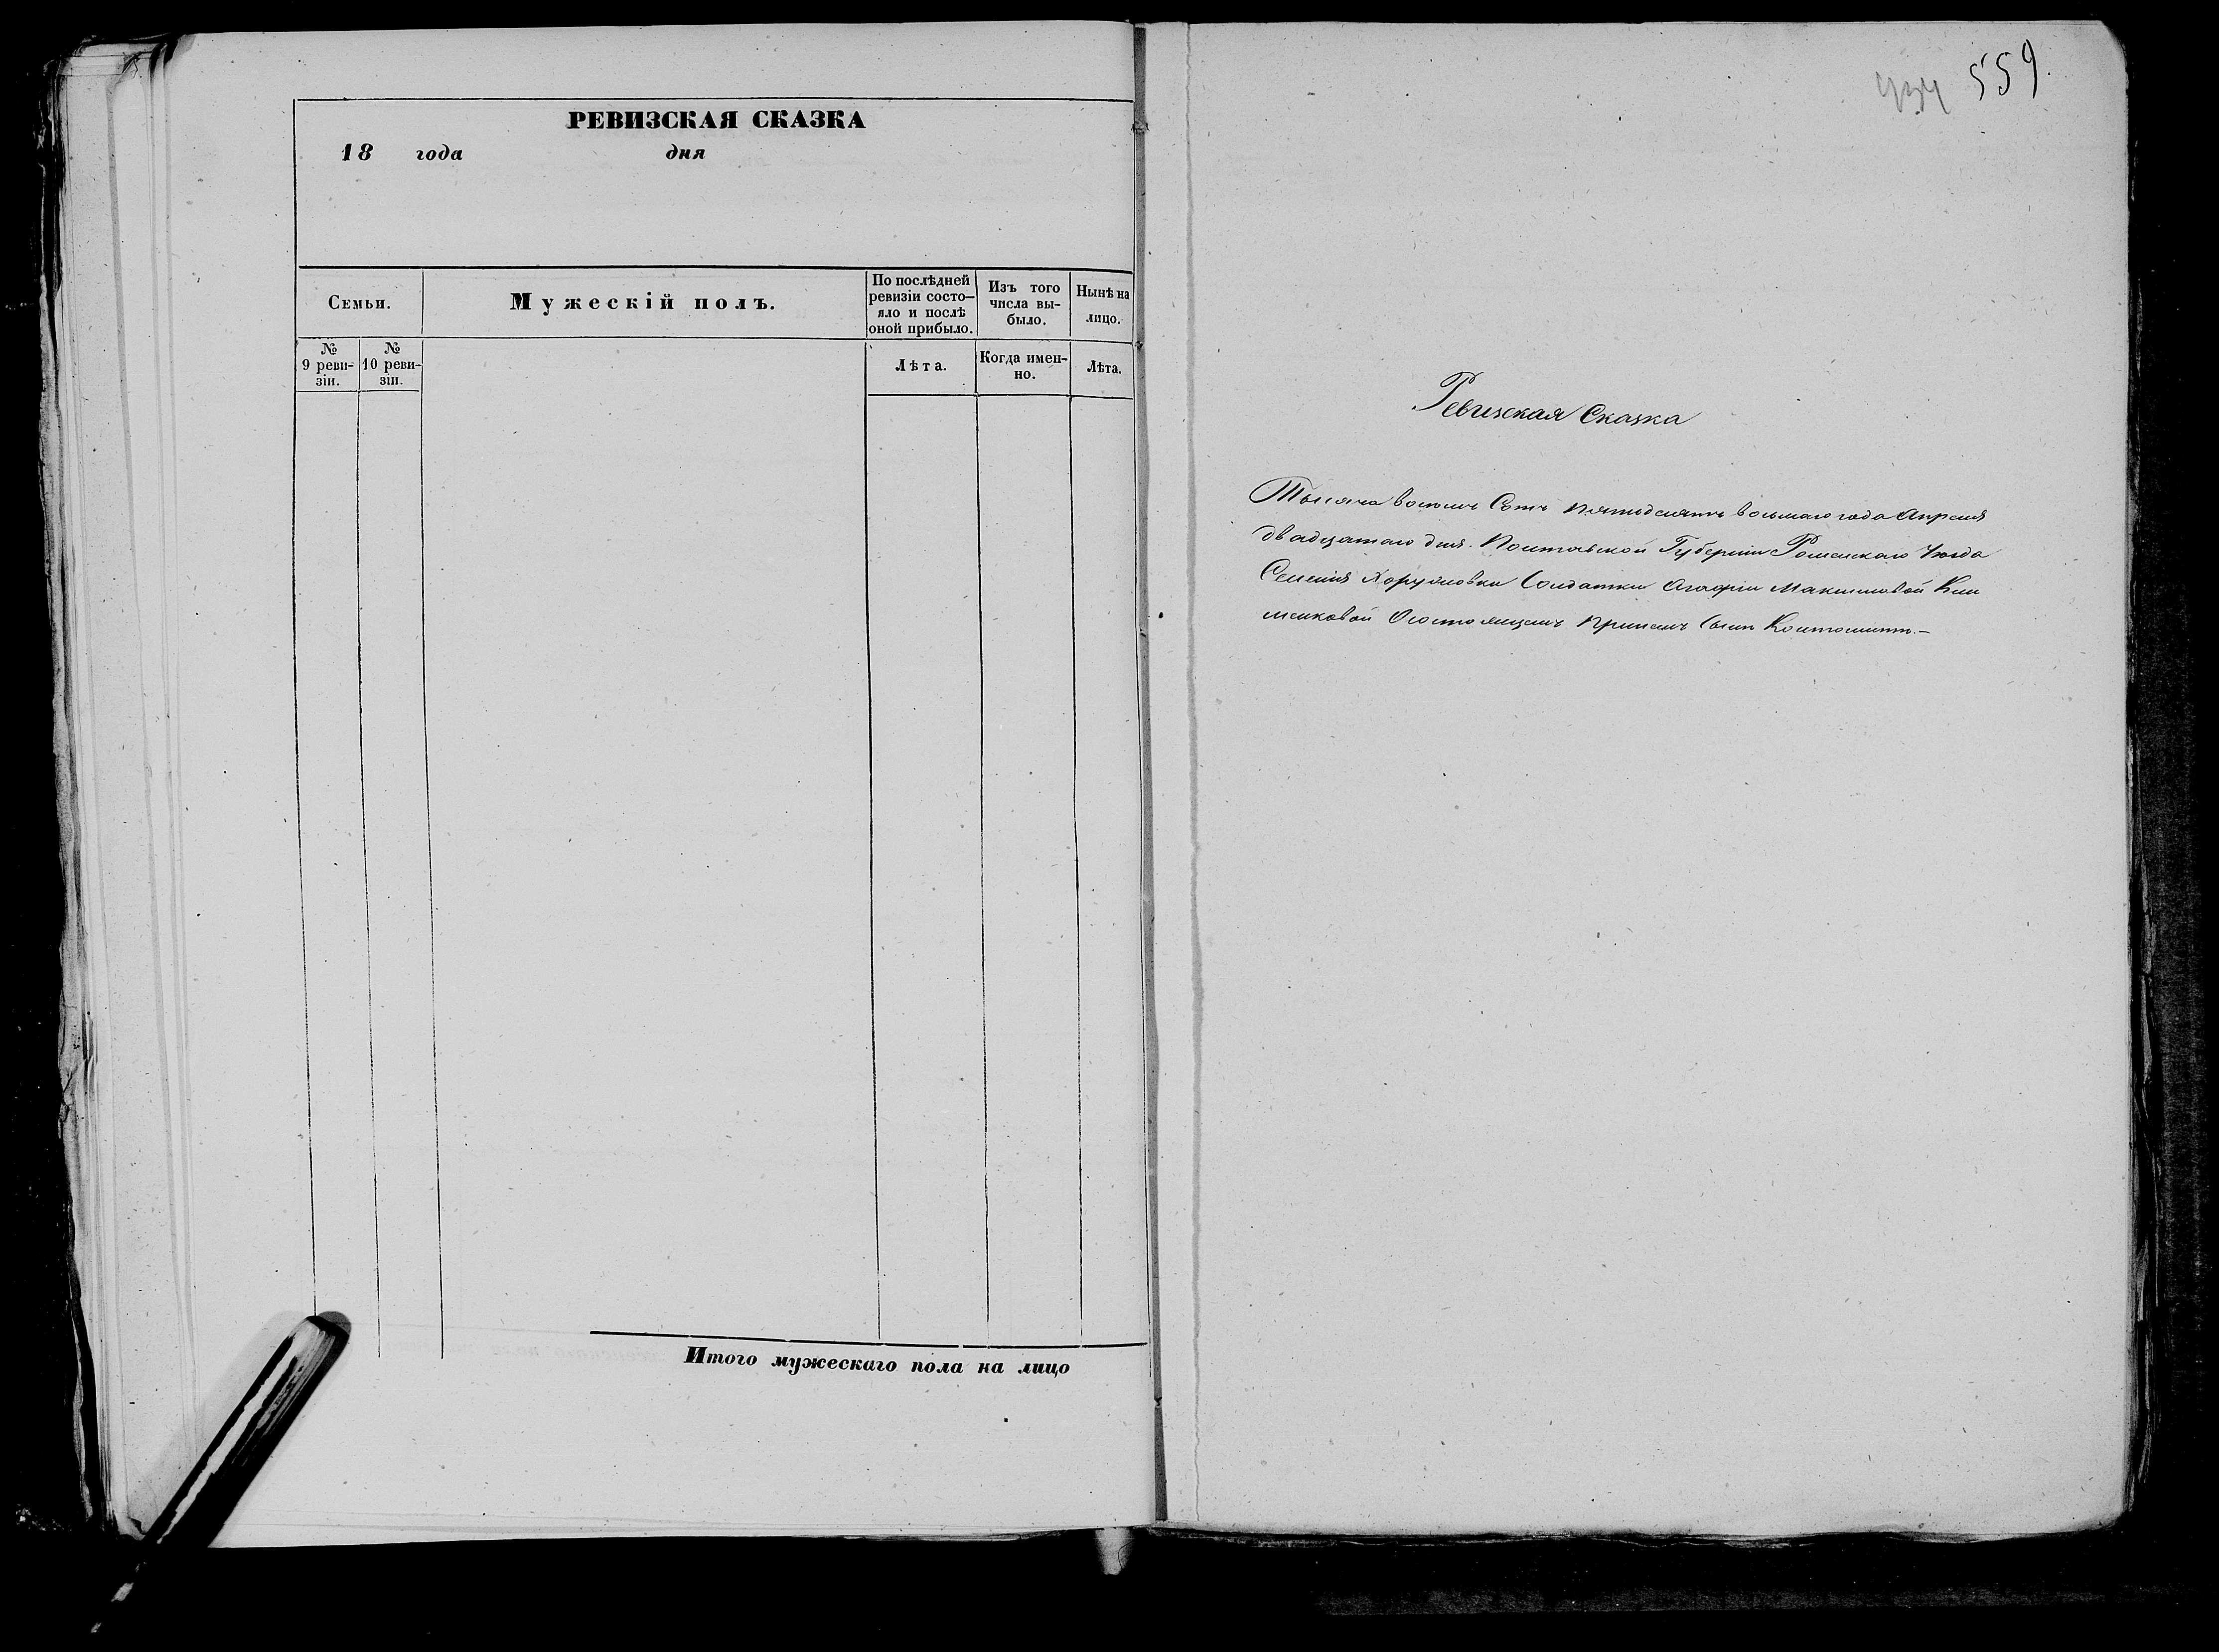 РЕВИЗСКАЯ СКАЗКА
18 года дня
Семьи.
Мужескій полъ.
По послѣдней
ревизіи состо-
яло и послѣ
оной прибыло.
Изъ того
числа вы-
было.
Нынѣ на
лицо.
№
9 реви-
зіи.
№
10 реви-
зіи.
Лѣта.
Когда имен-
но.
Лѣта.
Итого мужескаго пола на лицо
559.
Ревизская Сказка
Тысяча восемь Сотъ Пятьдесятъ восьмаго года Апреля
двадцатаго дня. Полтавской Губерніи Роменскаго Уезда
Селенія Хоружовки Солдатки Агафіи Максимовой Кли
менковой Осостоящемъ Приней Сыне Кантонисте.—